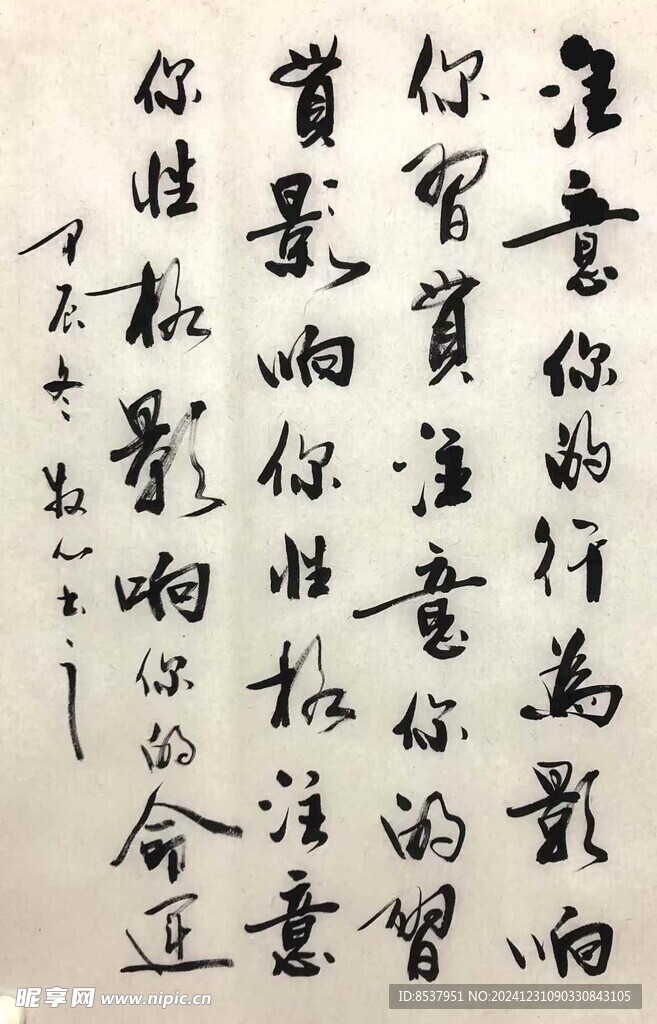 注意你的行為影响
你習貫注意你的習
貫影响你性格注意
你性格影响你的命運
甲辰冬牧心
昵享网 www.nipic.cn
ID:8537951 NO:20241231090330843105